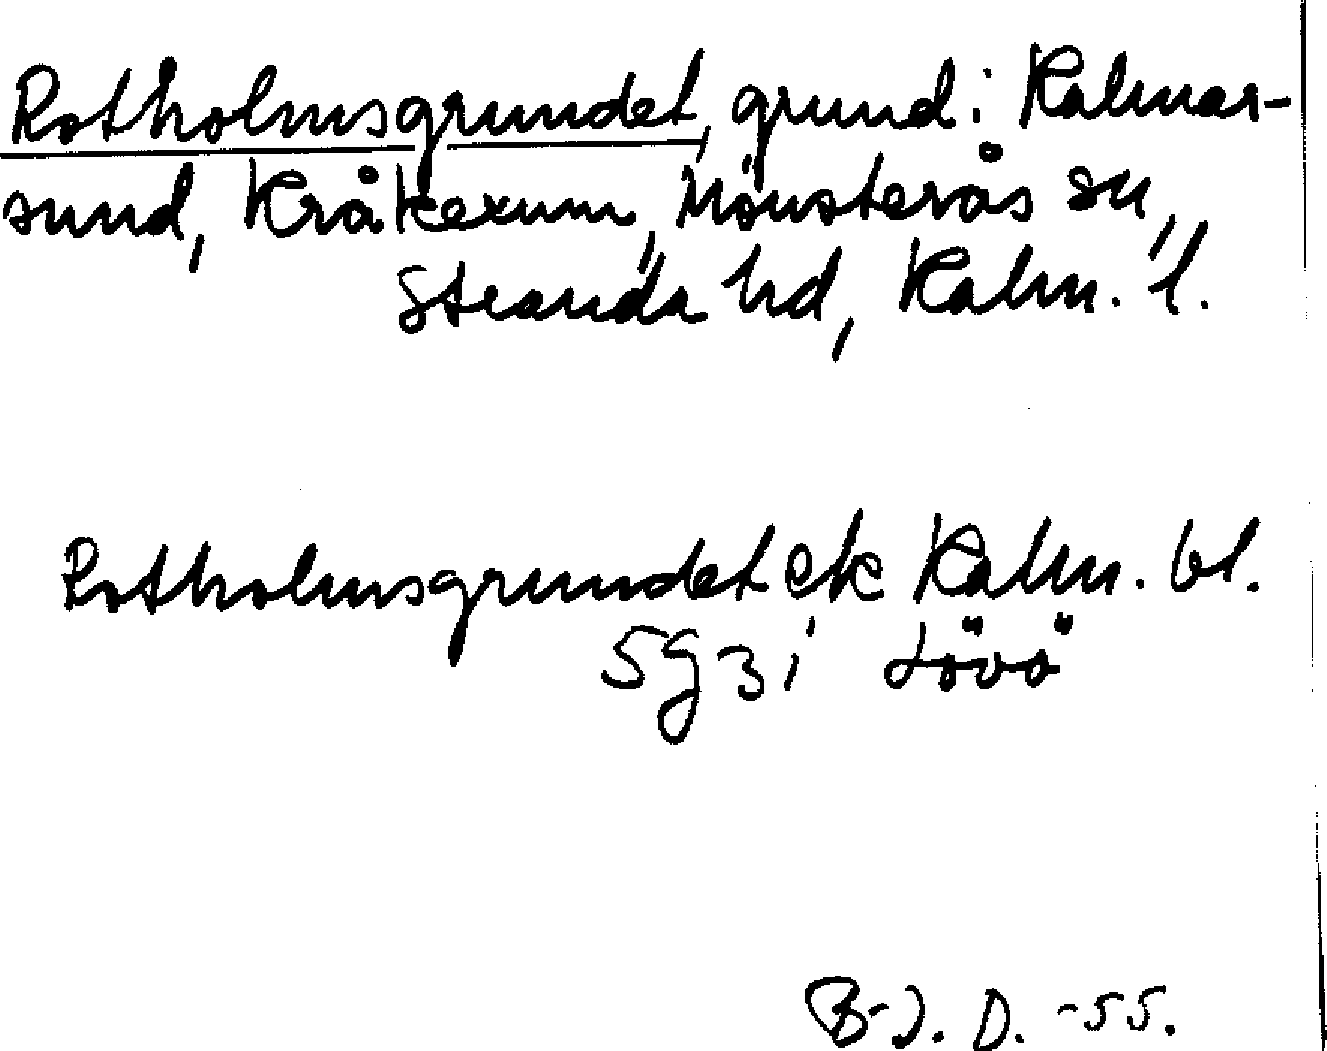 Rotholmsgrundet, grund i Kalmar-
sund, Kråkerum, Mönsterås sn,
Stranda hd, Kalm. l.
Rotholmsgrundet ek Kalm. bl.
5g3i Lövö
B-J. D. -55.